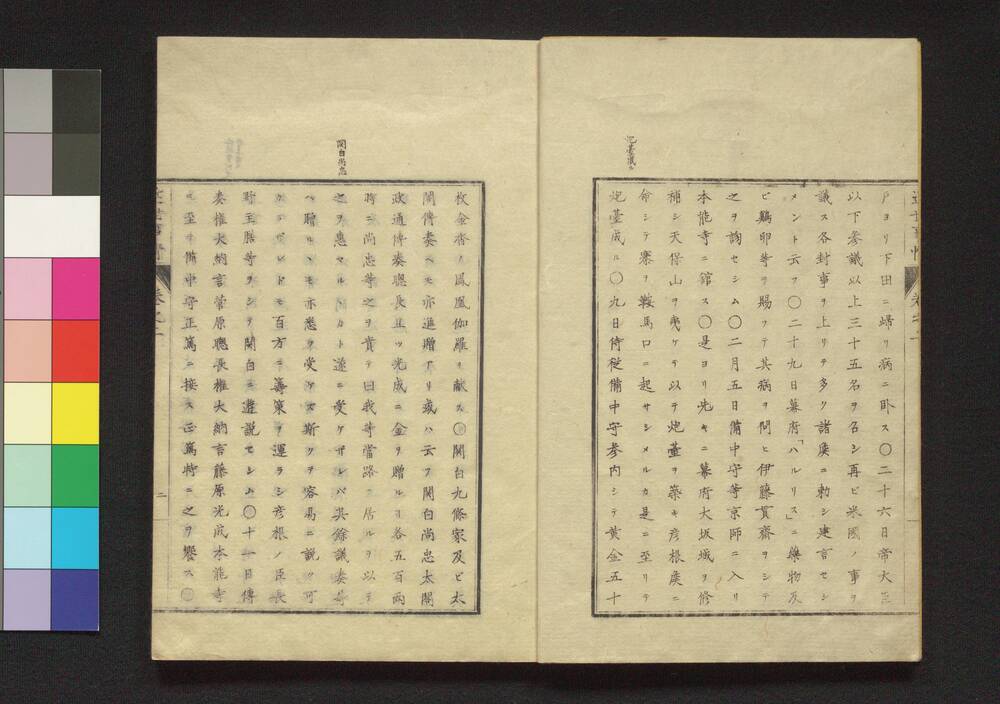 戸ヨリ下田ニ帰リ病ニ臥ス〇二十六日帝大臣
以下参議以上三十五名ヲ召シ再ビ米國ノ事ヲ
議ス各封事ヲ上リテ多ク諸侯ニ勅シ建言セシ
メント云フ〇二十九日幕府「ハルリス」ニ藥物及
ビ鷄卵等ヲ賜フテ其病ヲ問ヒ伊藤貫齋ヲシテ
之ヲ診セシム〇二月五日備中守等京師ニ入リ
本能寺ニ館ス〇是ヨリ先キニ幕府大坂城ヲ修
補シ天保山ヲ曳ケテ以テ炮臺ヲ築キ彦根侯ニ
命シテ寨ヲ鞍馬口ニ起サシメルカ是ニ至リテ
炮臺成ル〇九日侍従備中守参内シテ黄金五十
炮臺成ル
枚金香ノ鳳凰伽羅ヲ献ス〇関白九條家及ビ太
閤傳奏ヘモ亦進贈アリ或ハ云フ関白尚忠太閤
政通傳奏聰長正ツ光成ニ金ヲ贈ル各五百両
時ニ尚忠等之ヲ責テ曰我等當路ニ居ルヲ以テ
之ヲ惠マルヽカト遂ニ受ケザレバ其餘議奏等
ヘ贈ルヽモ亦悉ク受ケズ斯クヲ容易ニ説ク可
カラザレドモ百方ニ籌策ヲ運ラシ彦根ノ臣長
野主膳等ヲシテ関白ニ遊説セシム〇十一日傳
奏権大納言菅原聰長権大納言藤原光成本能寺
ニ至リ備中守正篤ニ接ス正篤特ニ之ヲ饗ス〇
関白尚忠
二